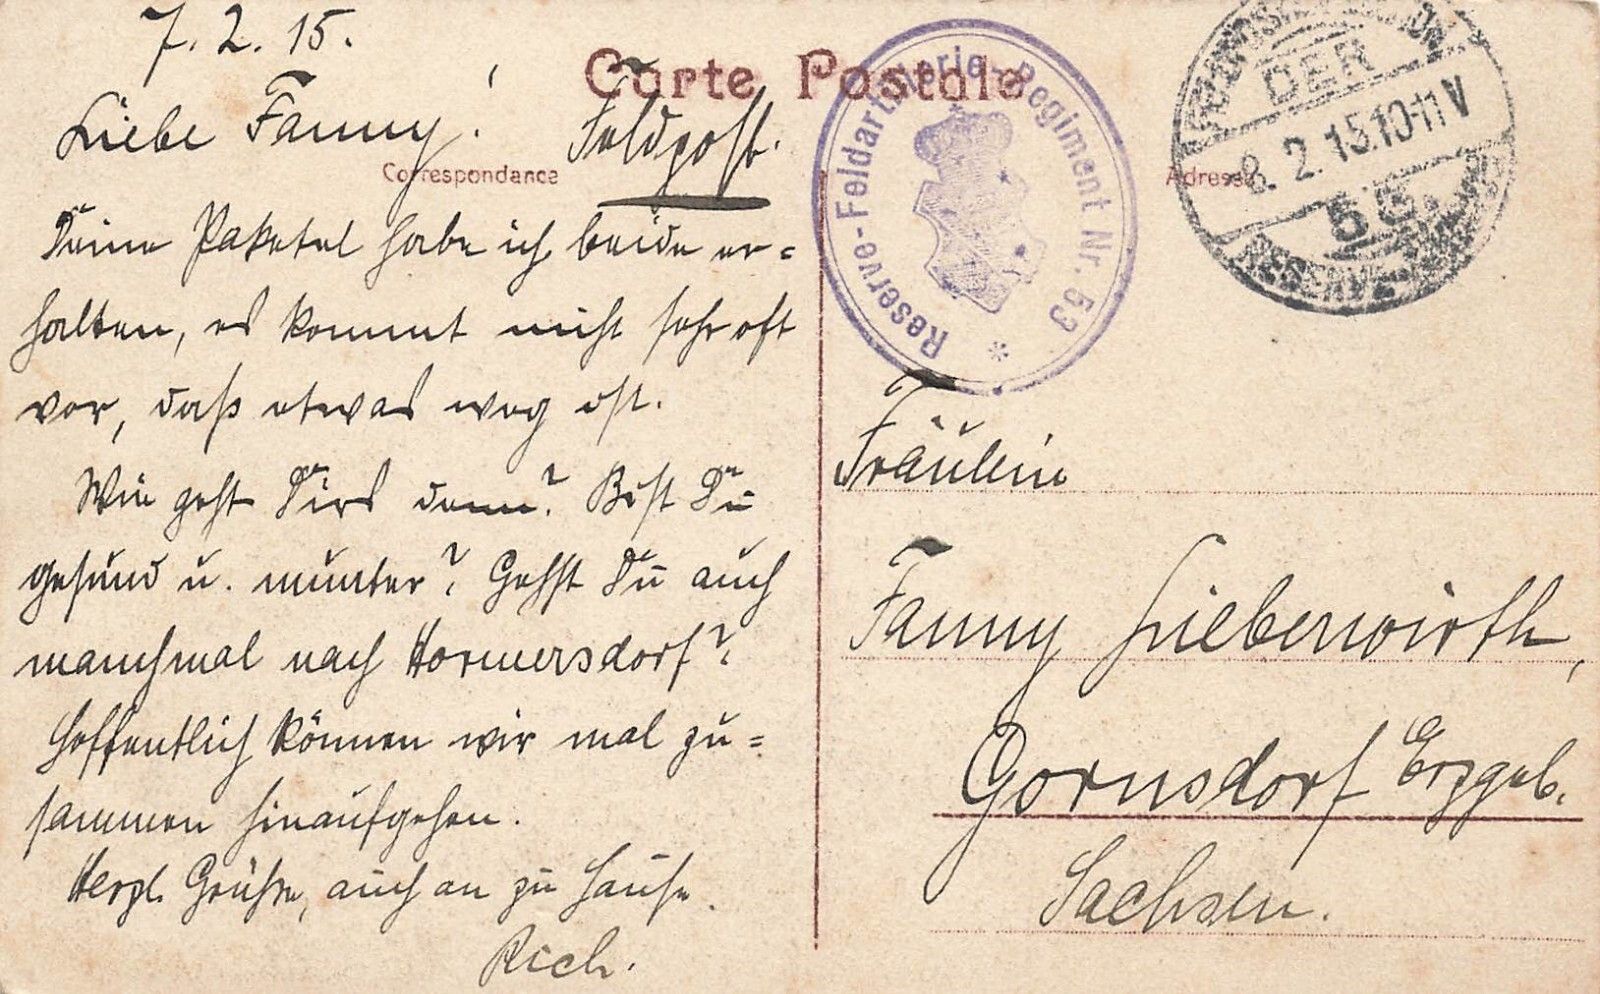 7. 2. 15.
Carte Postale
Liebe Fanny!
Feldpost.
Correspondance
Adresse
Deine Paketel habe ich beide er=
halten, es kommt nicht sehr oft
vor, daß etwas weg ist.
Wie geht Dirs denn? Bist Du
gesund u. munter? Gehst Du auch
manchmal nach Hormersdorf?
Hoffentlich können wir mal zu=
sammen hinaufgehen.
Herzl. Grüße, auch an zu Hause.
Rich.
Reserve-Feldartillerie-Regiment Nr. 53
*
DER
8. 2. 15.10-11 V
RESERVE
Fräulein
Fanny Lieberwirth,
Gornsdorf Erzgeb.
Sachsen.